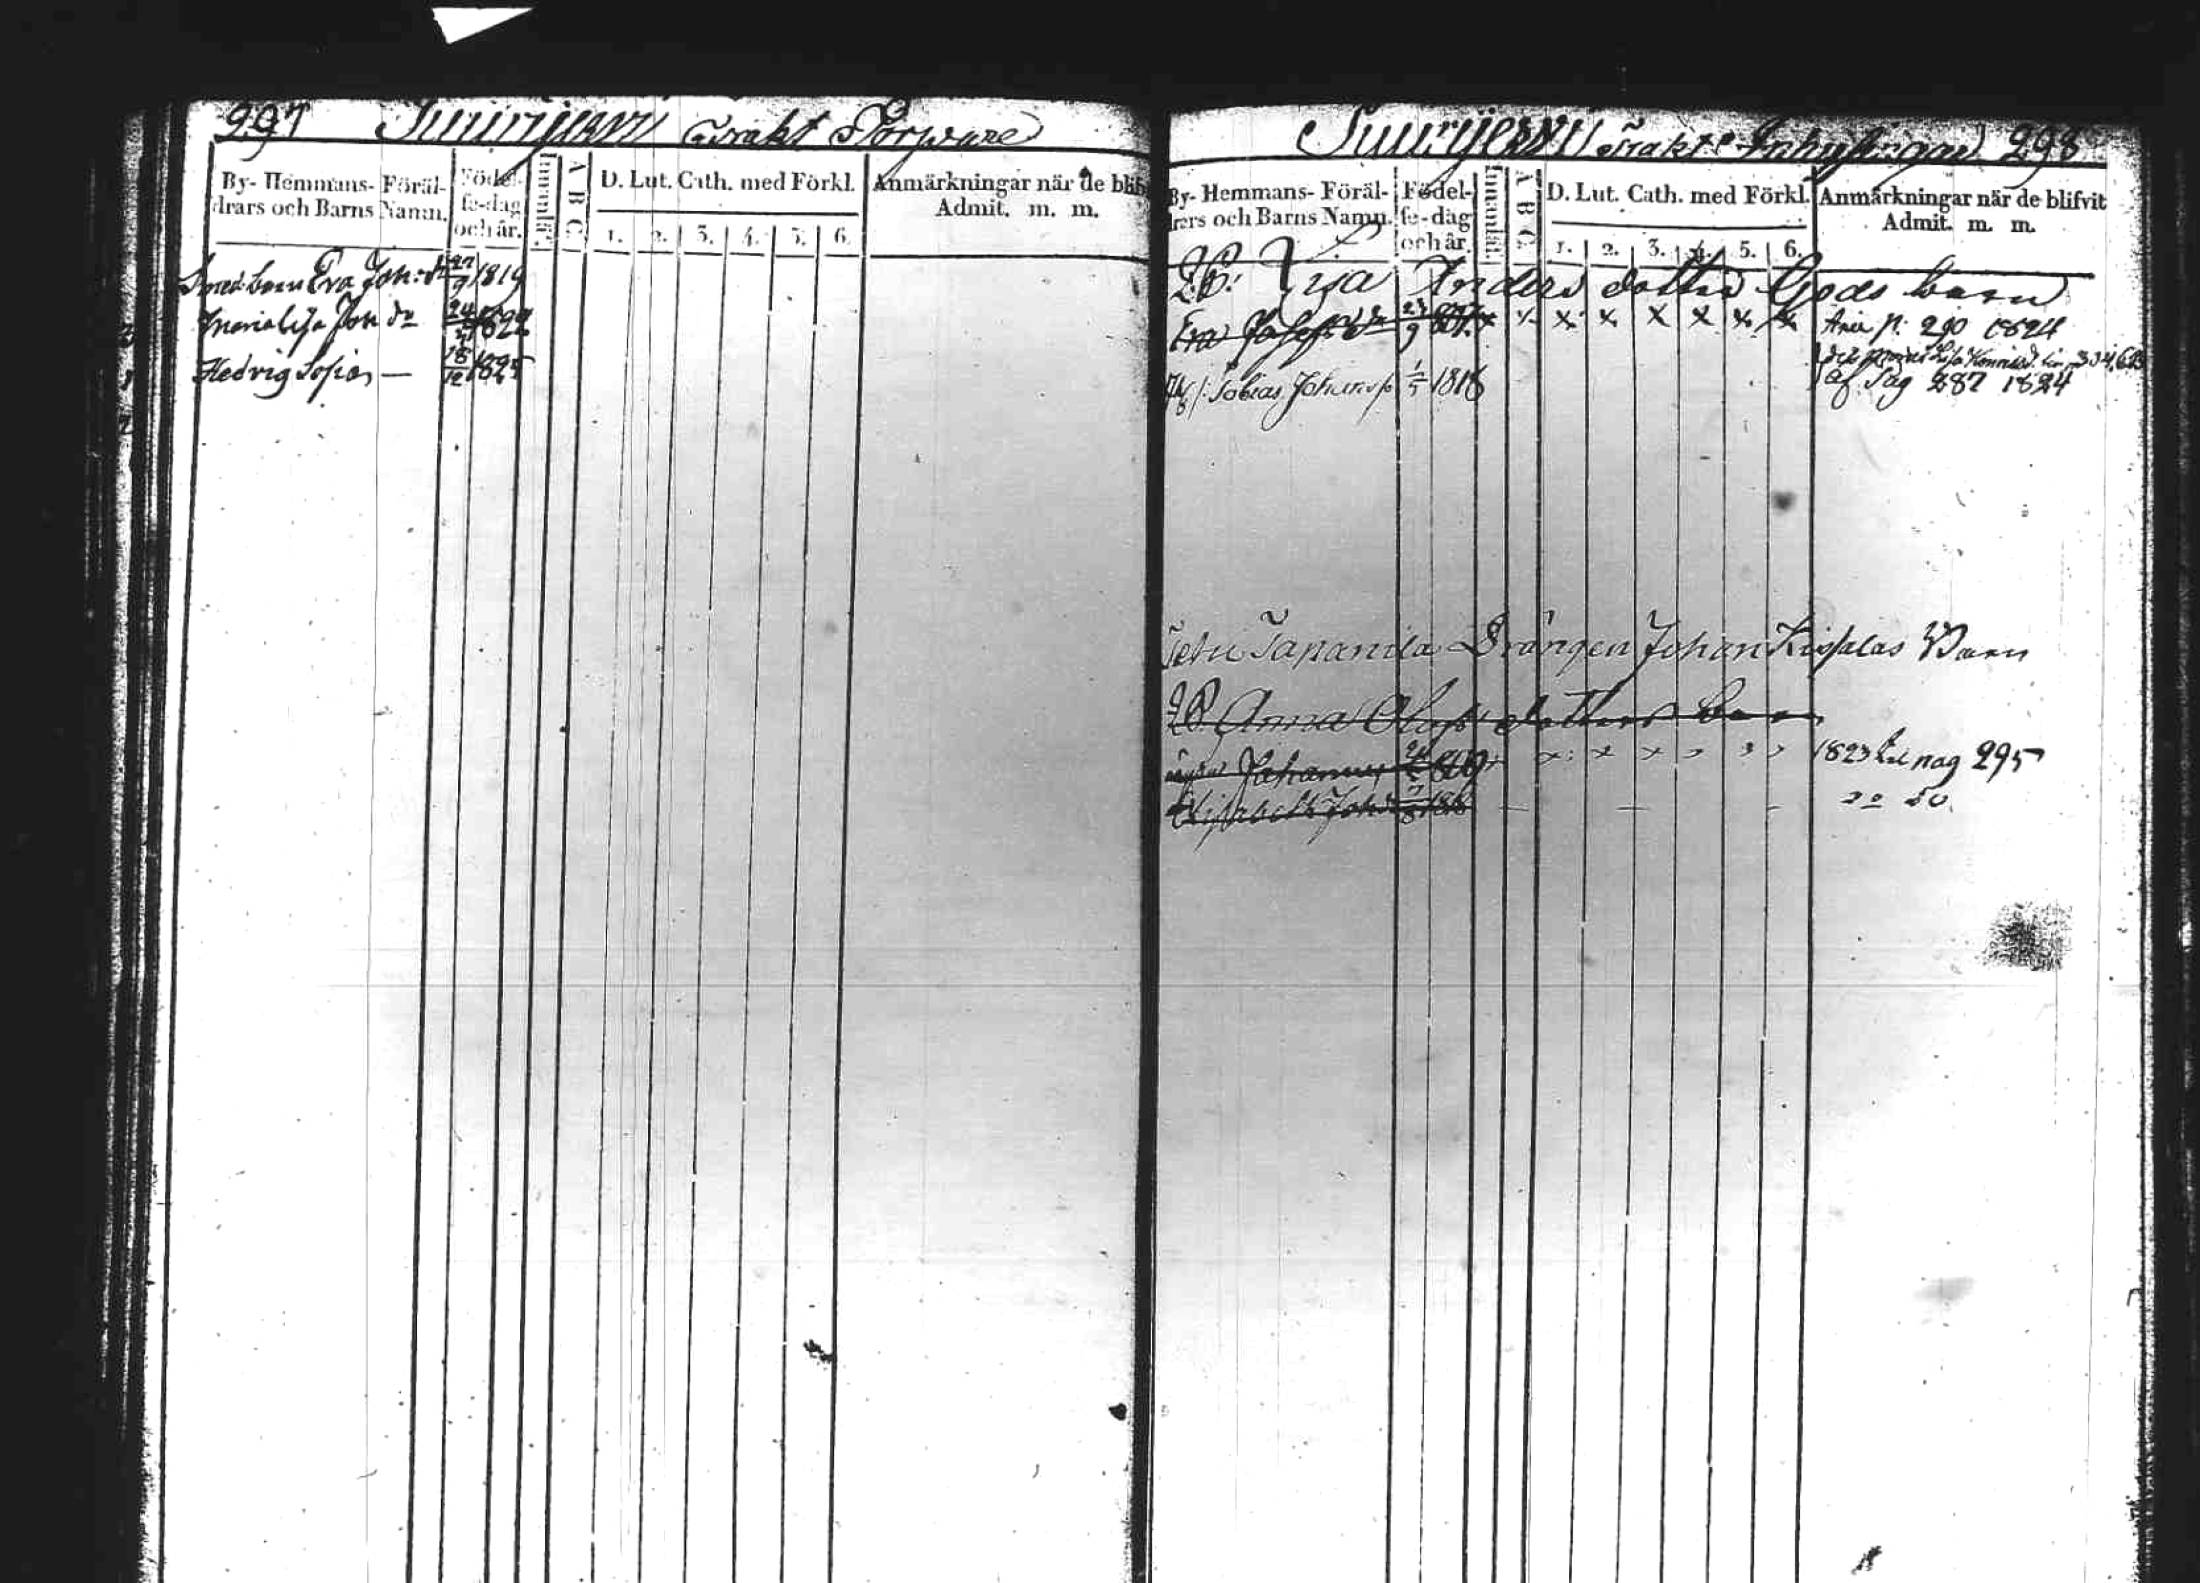 297 Suurijerwi Trakt Torpare
By- Hemmans- Föräl-
drars och Barns Namn.
Födel-
se-dag
och år.
Innanläs.
A B C
D. Lut. Cath. med Förkl.
1. 2. 3. 4. 5. 6.
Anmärkningar när de blif
Admit. m. m.
barn Eva Joh: dr 27/9 1819
Maria Lisa Joh dr 24
Hedvig Sofia — 18/12 1825
Suurijerwi Trakts Inhysingar 298
By- Hemmans- Föräl-
drars och Barns Namn.
Födel-
se-dag
och år.
Innanläs.
A B C
D. Lut. Cath. med Förkl.
1. 2. 3. 4. 5. 6.
Anmärkningar när de blifvit
Admit. m. m.
Lisa Anders dotter Gods barn
Eva Josefs dr 23/9 807 x x x x x x x x p. 290 1824
Tobias Johansso 1/5 1818 af Pag 287 1824
Tapanila Drängen Johan Kissalas Barn
Anna Olofs dotters barn
Johannes x x x 1823 pag 295
Elisabeth Joh dr 7/8 1818 — — — do do